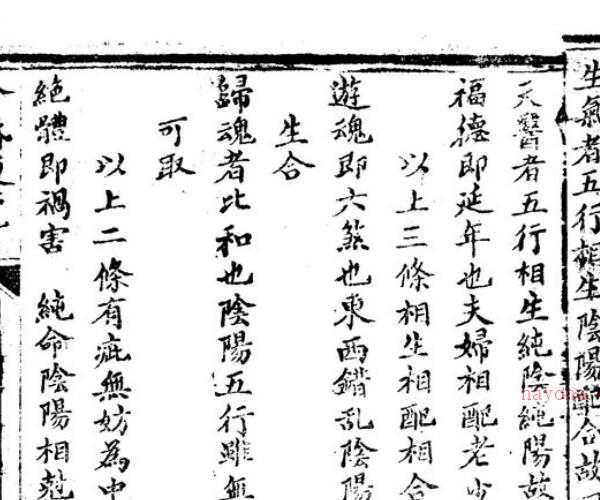 生氣者五行相生陰陽配合故
天醫者五行相生純陰純陽故
福德即延年也夫婦相配老少
以上三條相生相配相合
遊魂即六煞也東西錯乱陰陽
生合
歸魂者比和也陰陽五行雖無
可取
以上二條有疵無妨為中
絕體即禍害 純命陰陽相尅
hayona